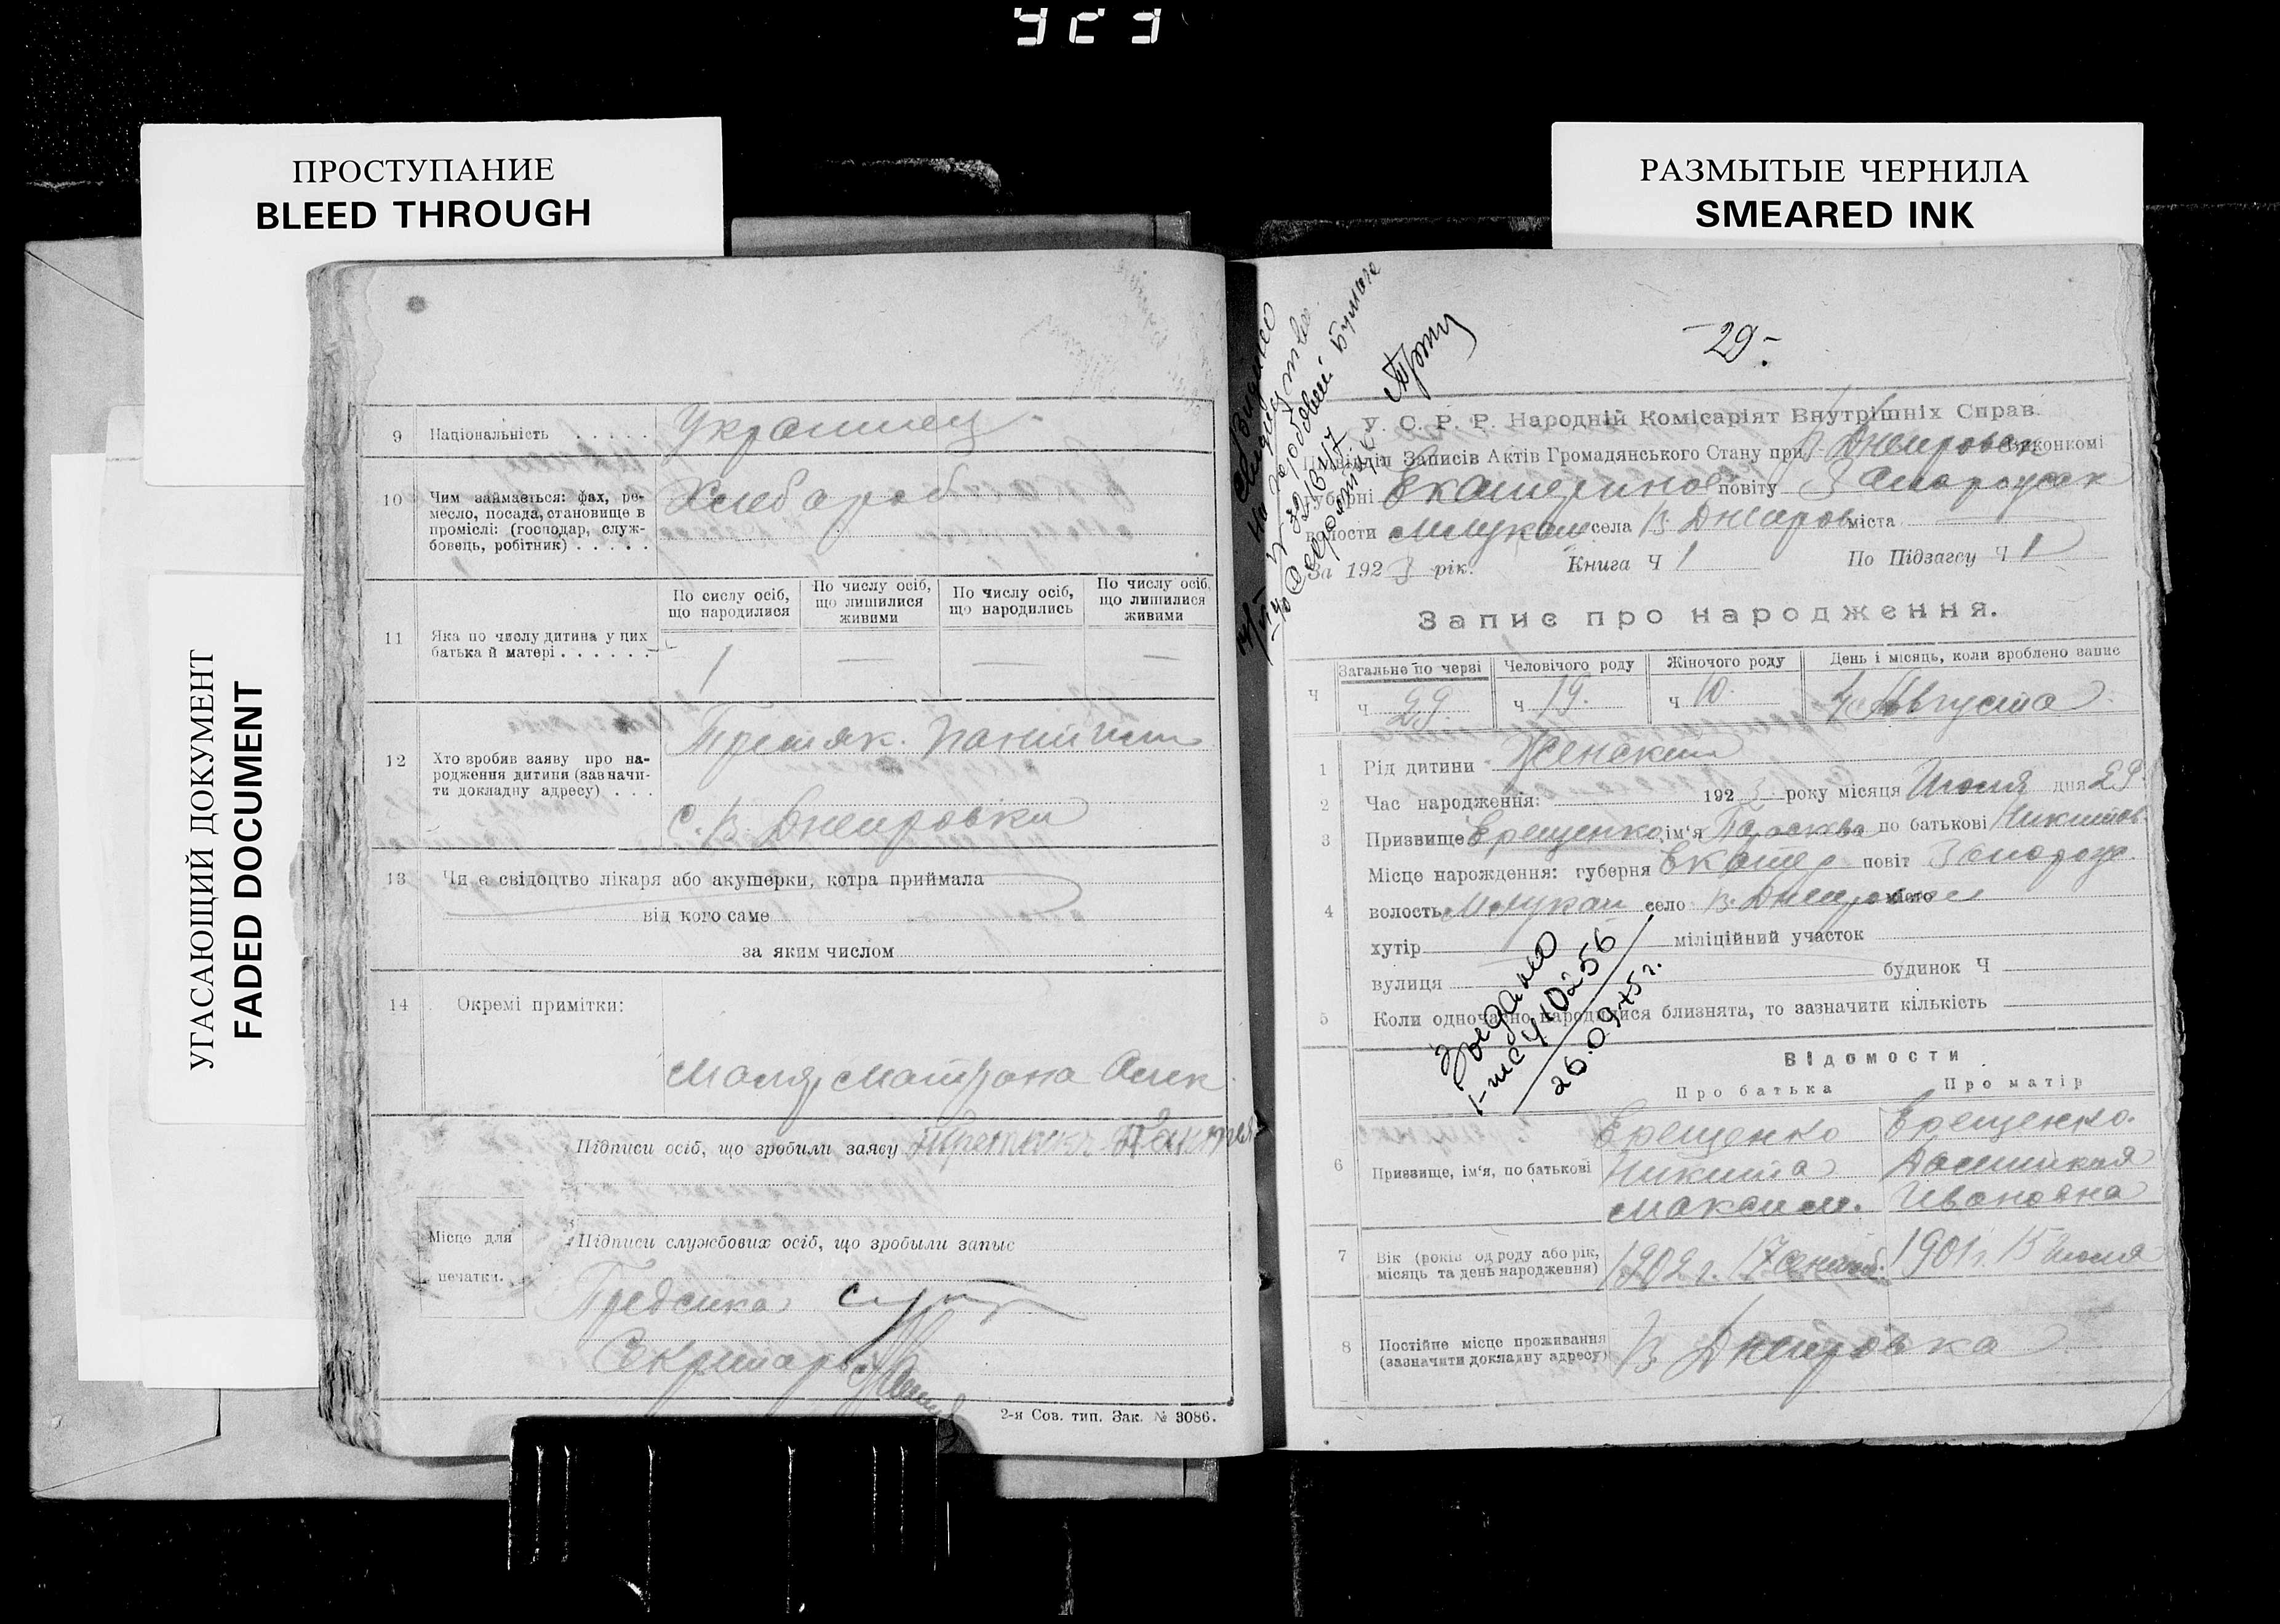 923
ПРОСТУПАНИЕ
BLEED THROUGH
РАЗМЫТЫЕ ЧЕРНИЛА
SMEARED INK
УГАСАЮЩИЙ ДОКУМЕНТ
FADED DOCUMENT
9 Національність . . . . . Украинец
10 Чим займається: фах, ре-
месло, посада, становище в
проміслі: (господар, служ-
бовець, робітник) . . . . . Хлебороб
11 Яка по числу дитина у цих
батька й матері . . . . . .
По сислу осіб,
що народилися
По числу осіб,
що лишилися
живими
По числу осіб,
що народились
По числу осіб,
що лишилися
живими
1 — — —
12 Хто зробив заяву про на-
родження дитини (зазначи-
ти докладну адресу) . . .
Третяк
с. В Днепровки
13 Чи є свідоцтво лікаря або акушерки, котра приймала
від кого саме
за яким числом
14 Окремі примітки:
Матрона
Підписи осіб, що зробили заяву
Місце для
печатки.
Підписи службових осіб, що зробыли запыс
Секритарь
2-я Сов. тип. Зак. № 3086.
-29-
У. С. Р. Р. Народній Комісаріят Внутрішніх Справ.
Підвідділ Записів Актів Громадянського Стану при В Днепровск виконкомі
Губерні Екатеринос повіту Запорожск
волости села В. Днепров міста
За 1923 рік. Книга Ч 1 По Підзагсу Ч 1
Запис про народження.
Ч Загальне по черзі Человічого роду Жіночого роду День і місяць, коли зроблено запис
ч 29. ч 19. ч 10. 4 Августа
1 Рід дитини Женский
2 Час народження: 1923 року місяця Июля дня 29
3 Призвище Ерещенко ім'я Параскева по батькові Никитов
4 Місце нарождення: губерня Екатер повіт Запорож
волость село В. Днепровка место
хутір міліційний участок
вулиця будинок Ч
5 Коли одночасно народилися близнята, то зазначити кількість
Видано
26.09.45 г.
Відомости
Про батька Про матір
6 Призвище, ім'я, по батькові
Ерещенко Ерещенко.
Никита Домникия
Максим. Ивановна
7 Вік (років од роду або рік,
місяць та день народження) 1902 г. 17 1901 г. 15 июля
8 Постійне місце проживання
(зазначити докладну адресу) В Днепровка